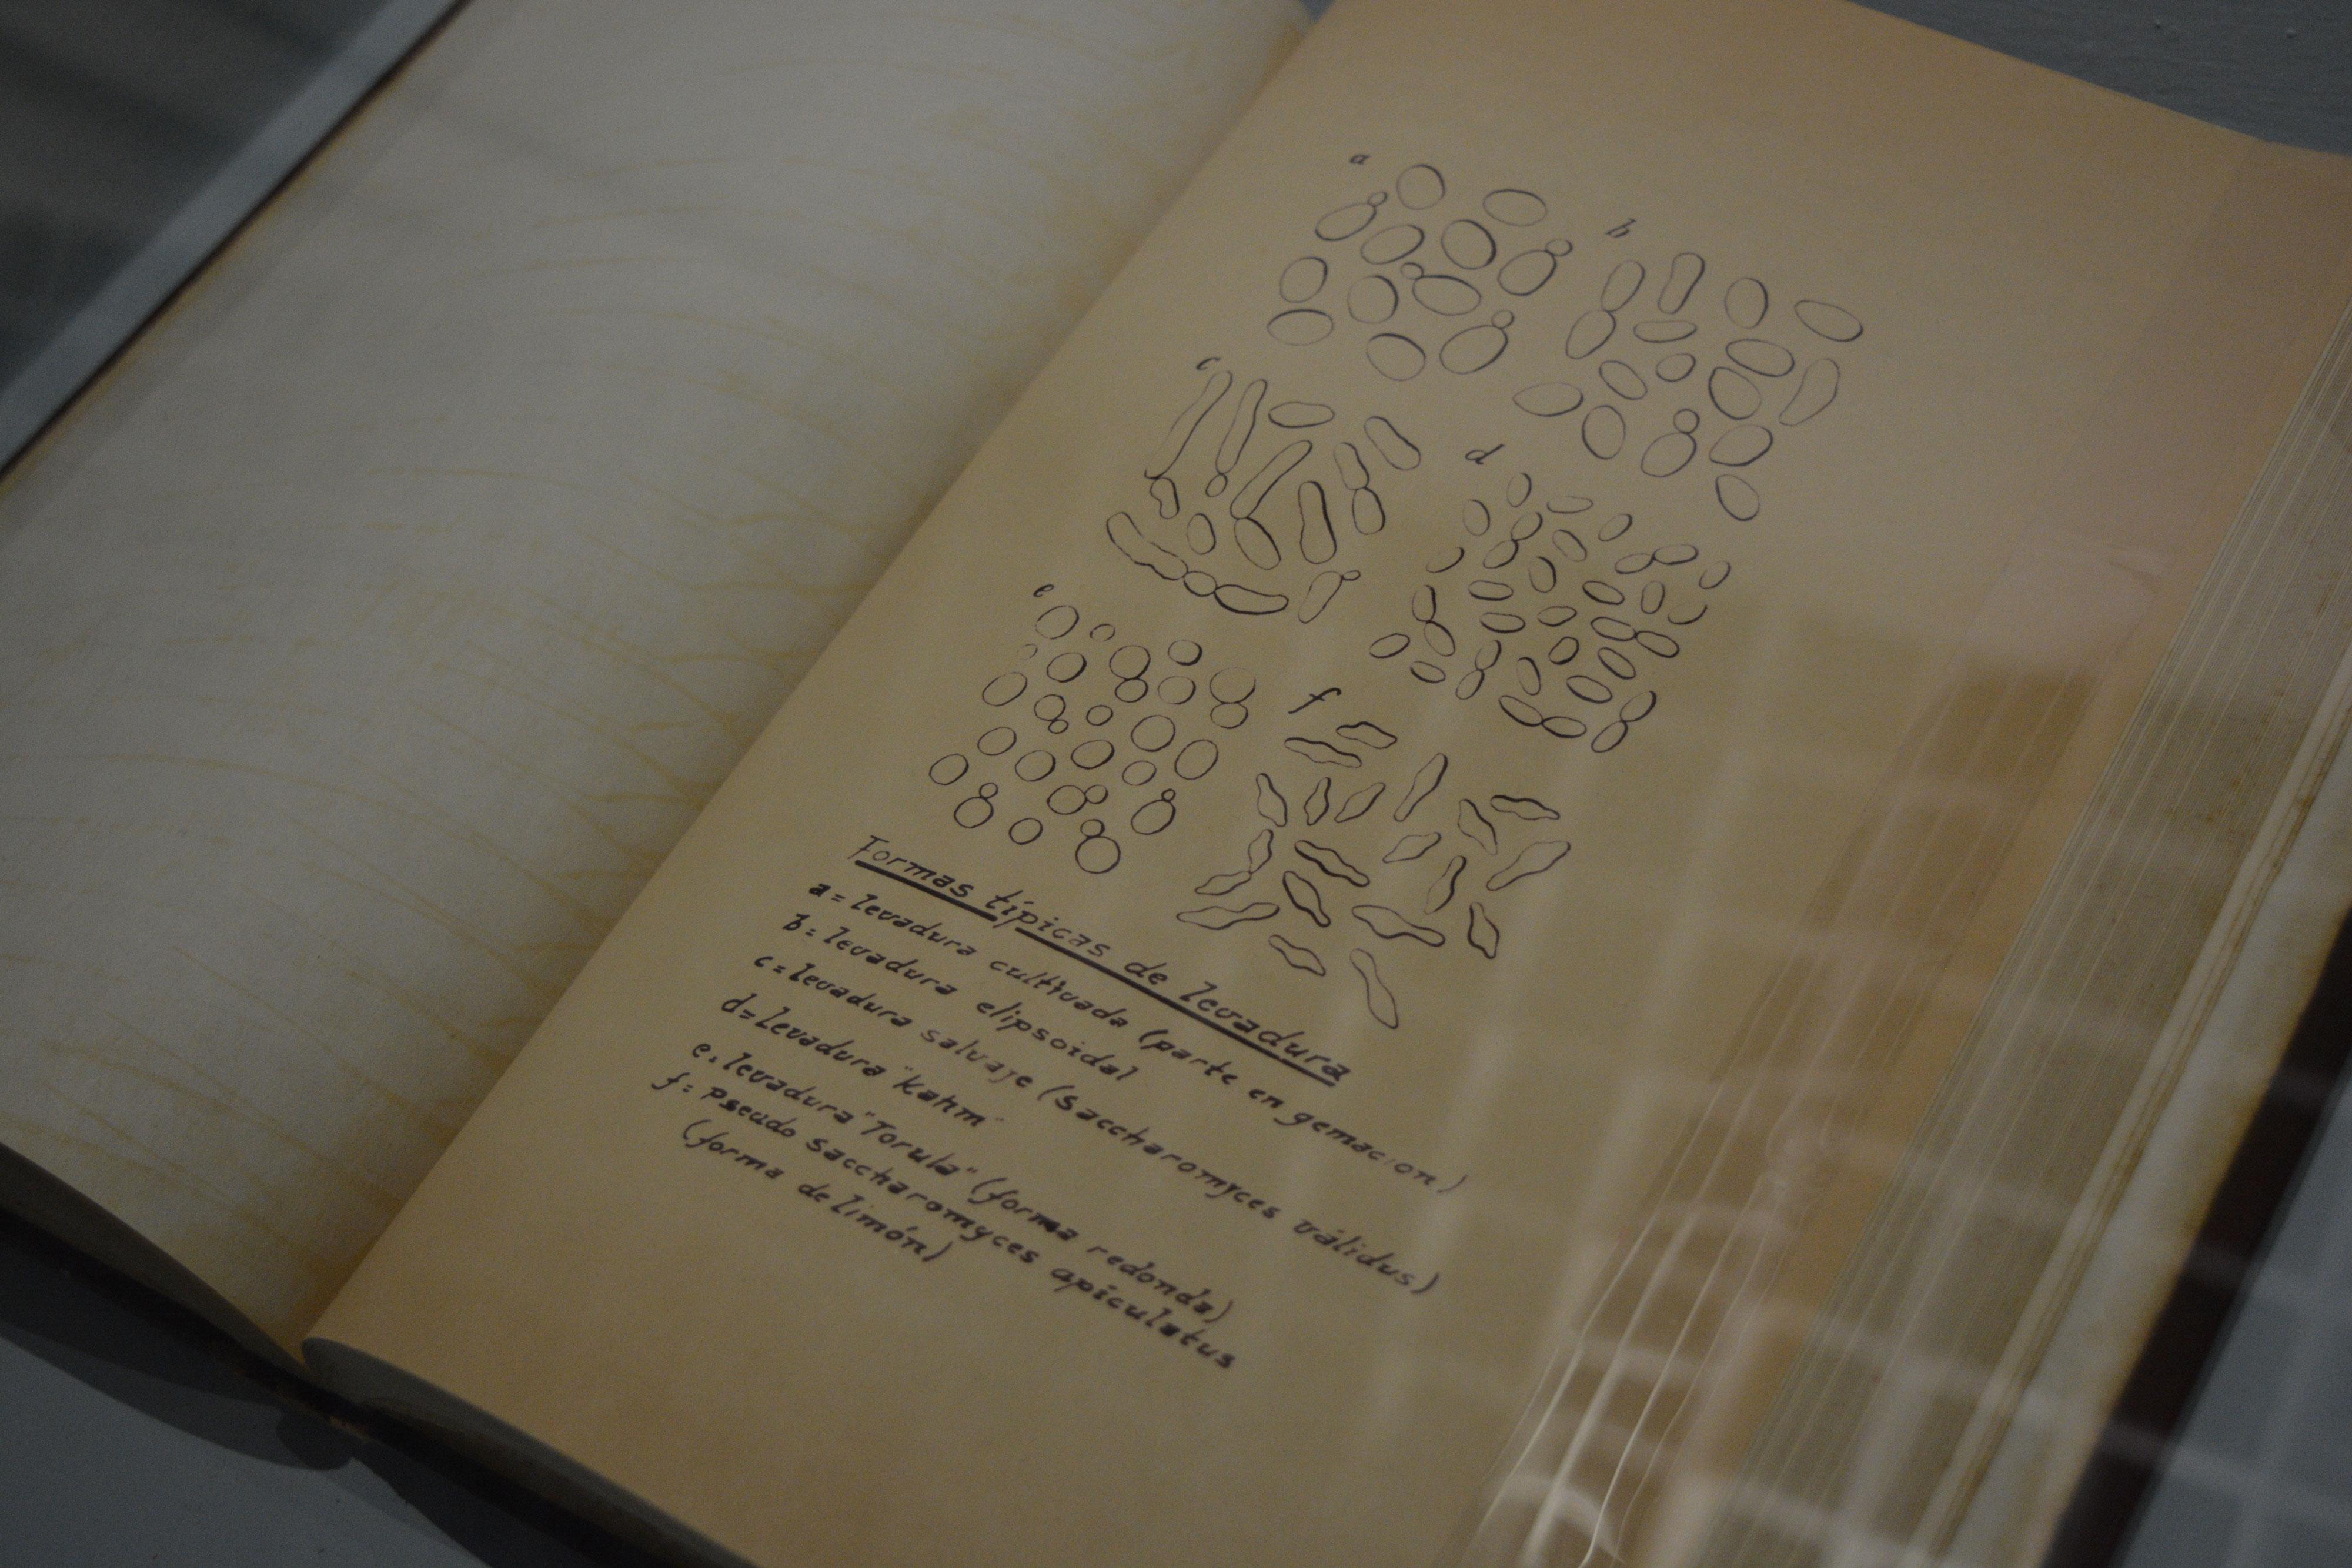 a
b
c
d
e
f
Formas típicas de levadura
a = levadura cultivada (parte en gemación)
b = levadura elipsoidal
c = levadura salvaje (saccharomyces válidus)
d = levadura "Kahm"
e = levadura "Torula" (forma redonda)
f = Pseudo saccharomyces apiculatus
(forma de limón)